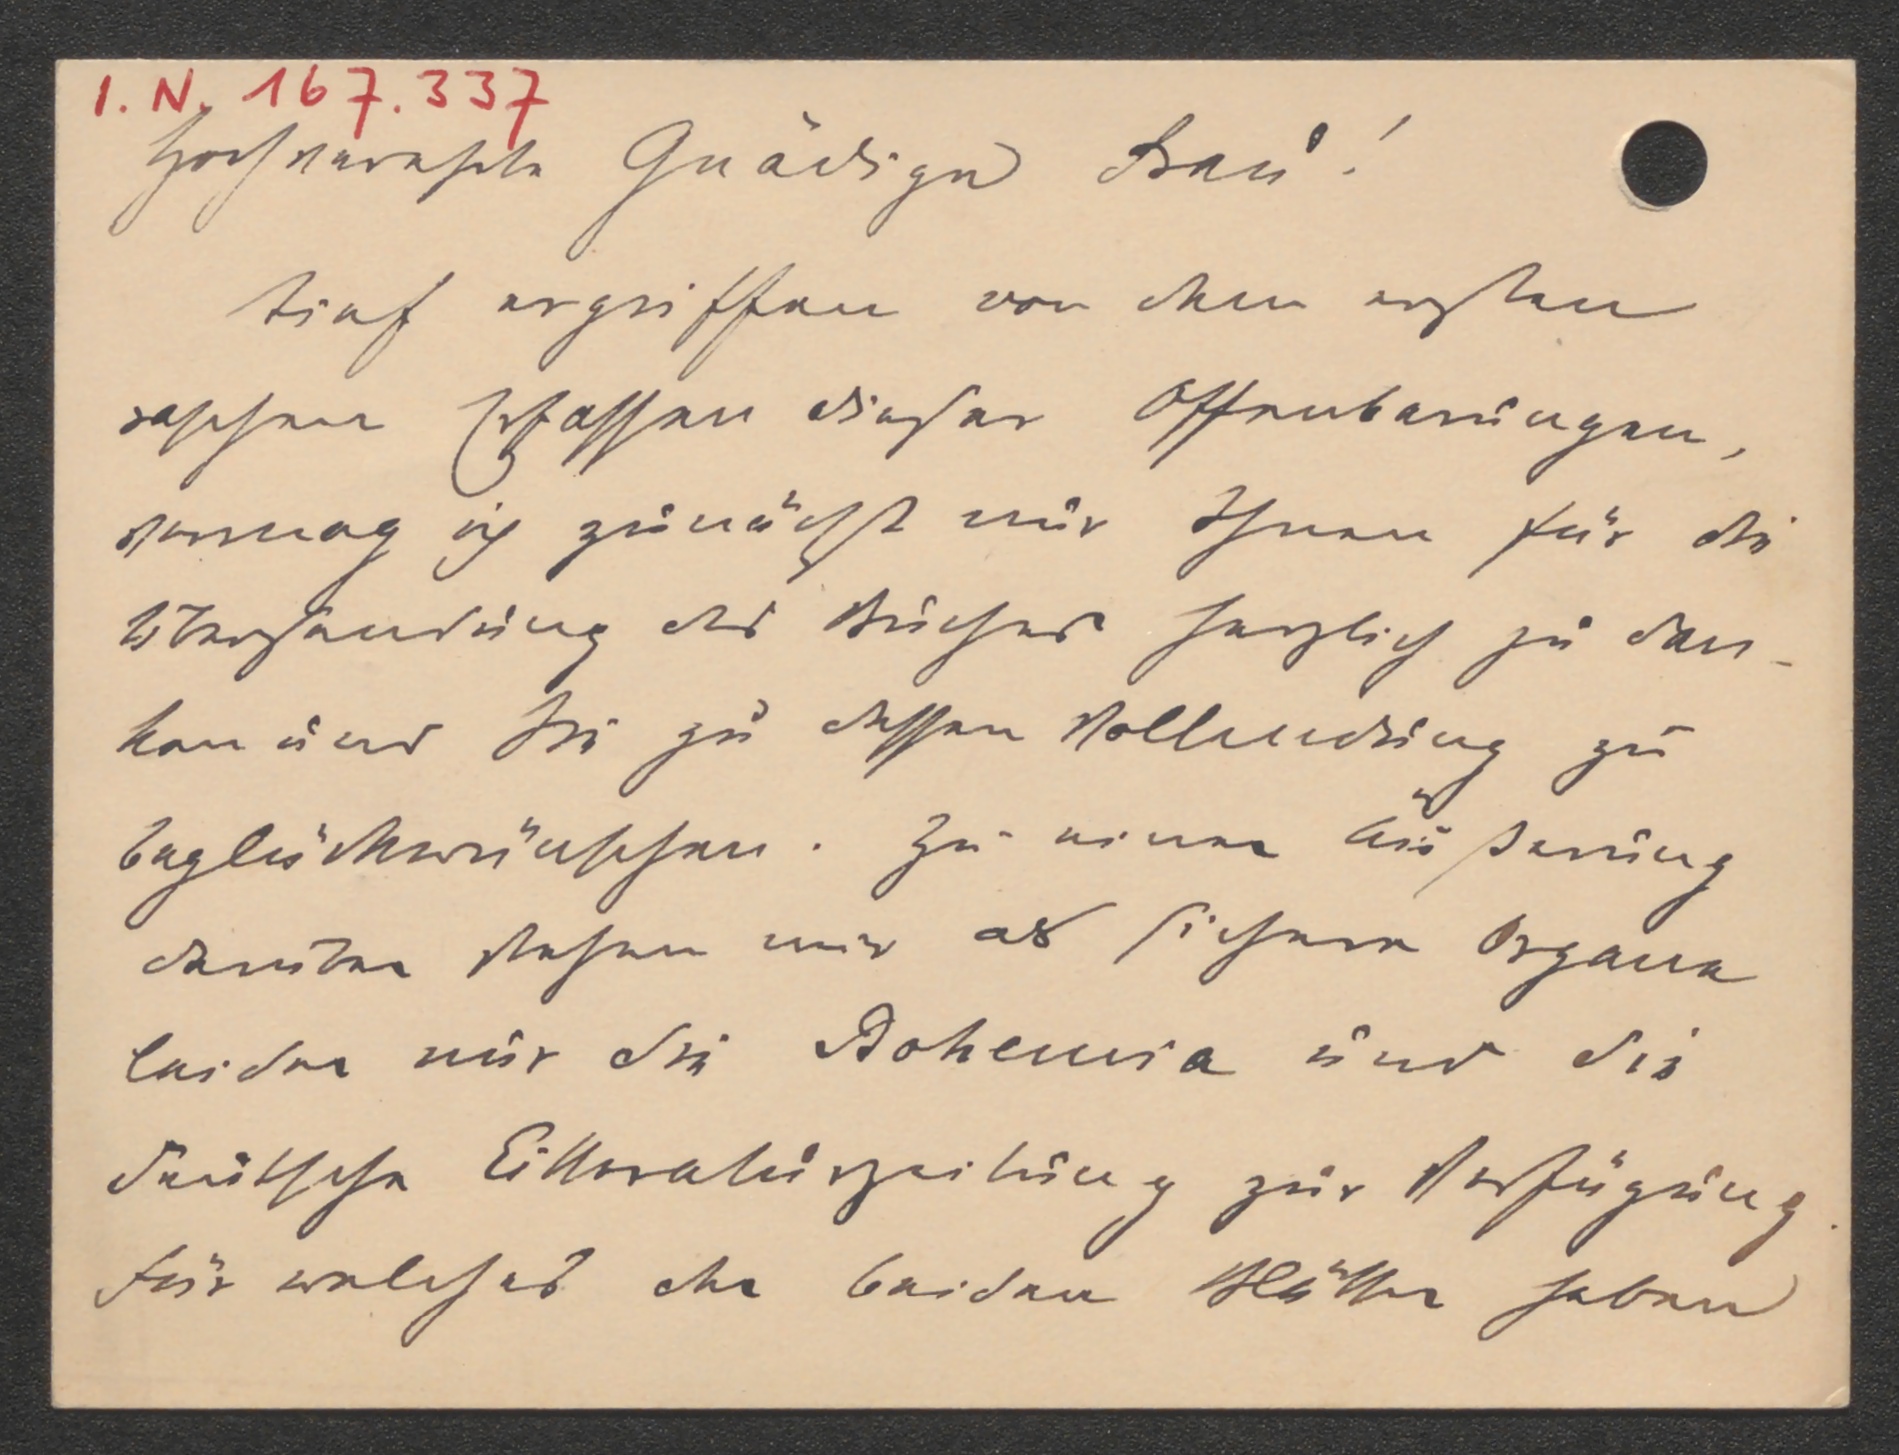 I. N. 167.337
Hochverehrte Gnädige Frau!
tief ergriffen von dem ersten
raschen Erfassen dieser Offenbarungen,
vermag ich zunächst nur Ihnen für die
Übersendung des Buches herzlich zu dan-
ken und Sie zu dessen Vollendung zu
beglückwünschen. Zu einer Äußerung
darüber stehen mir als sichere Organe
leider nur die Bohemia und die
deutsche Litteraturzeitung zur Verfügung.
Für welches der beiden Blätter haben